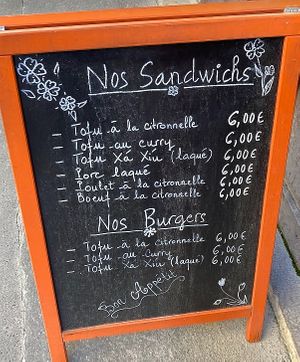 Nos Sandwichs
- Tofu à la citronnelle 6,00€
- Tofu au curry 6,00€
- Tofu Xá Xíu (laqué) 6,00€
- Porc laqué 6,00€
- Poulet à la citronnelle 6,00€
- Boeuf à la citronnelle 6,00€
Nos Burgers
- Tofu à la citronnelle 6,00€
- Tofu au curry 6,00€
- Tofu Xá Xíu (laqué) 6,00€
Bon Appétit